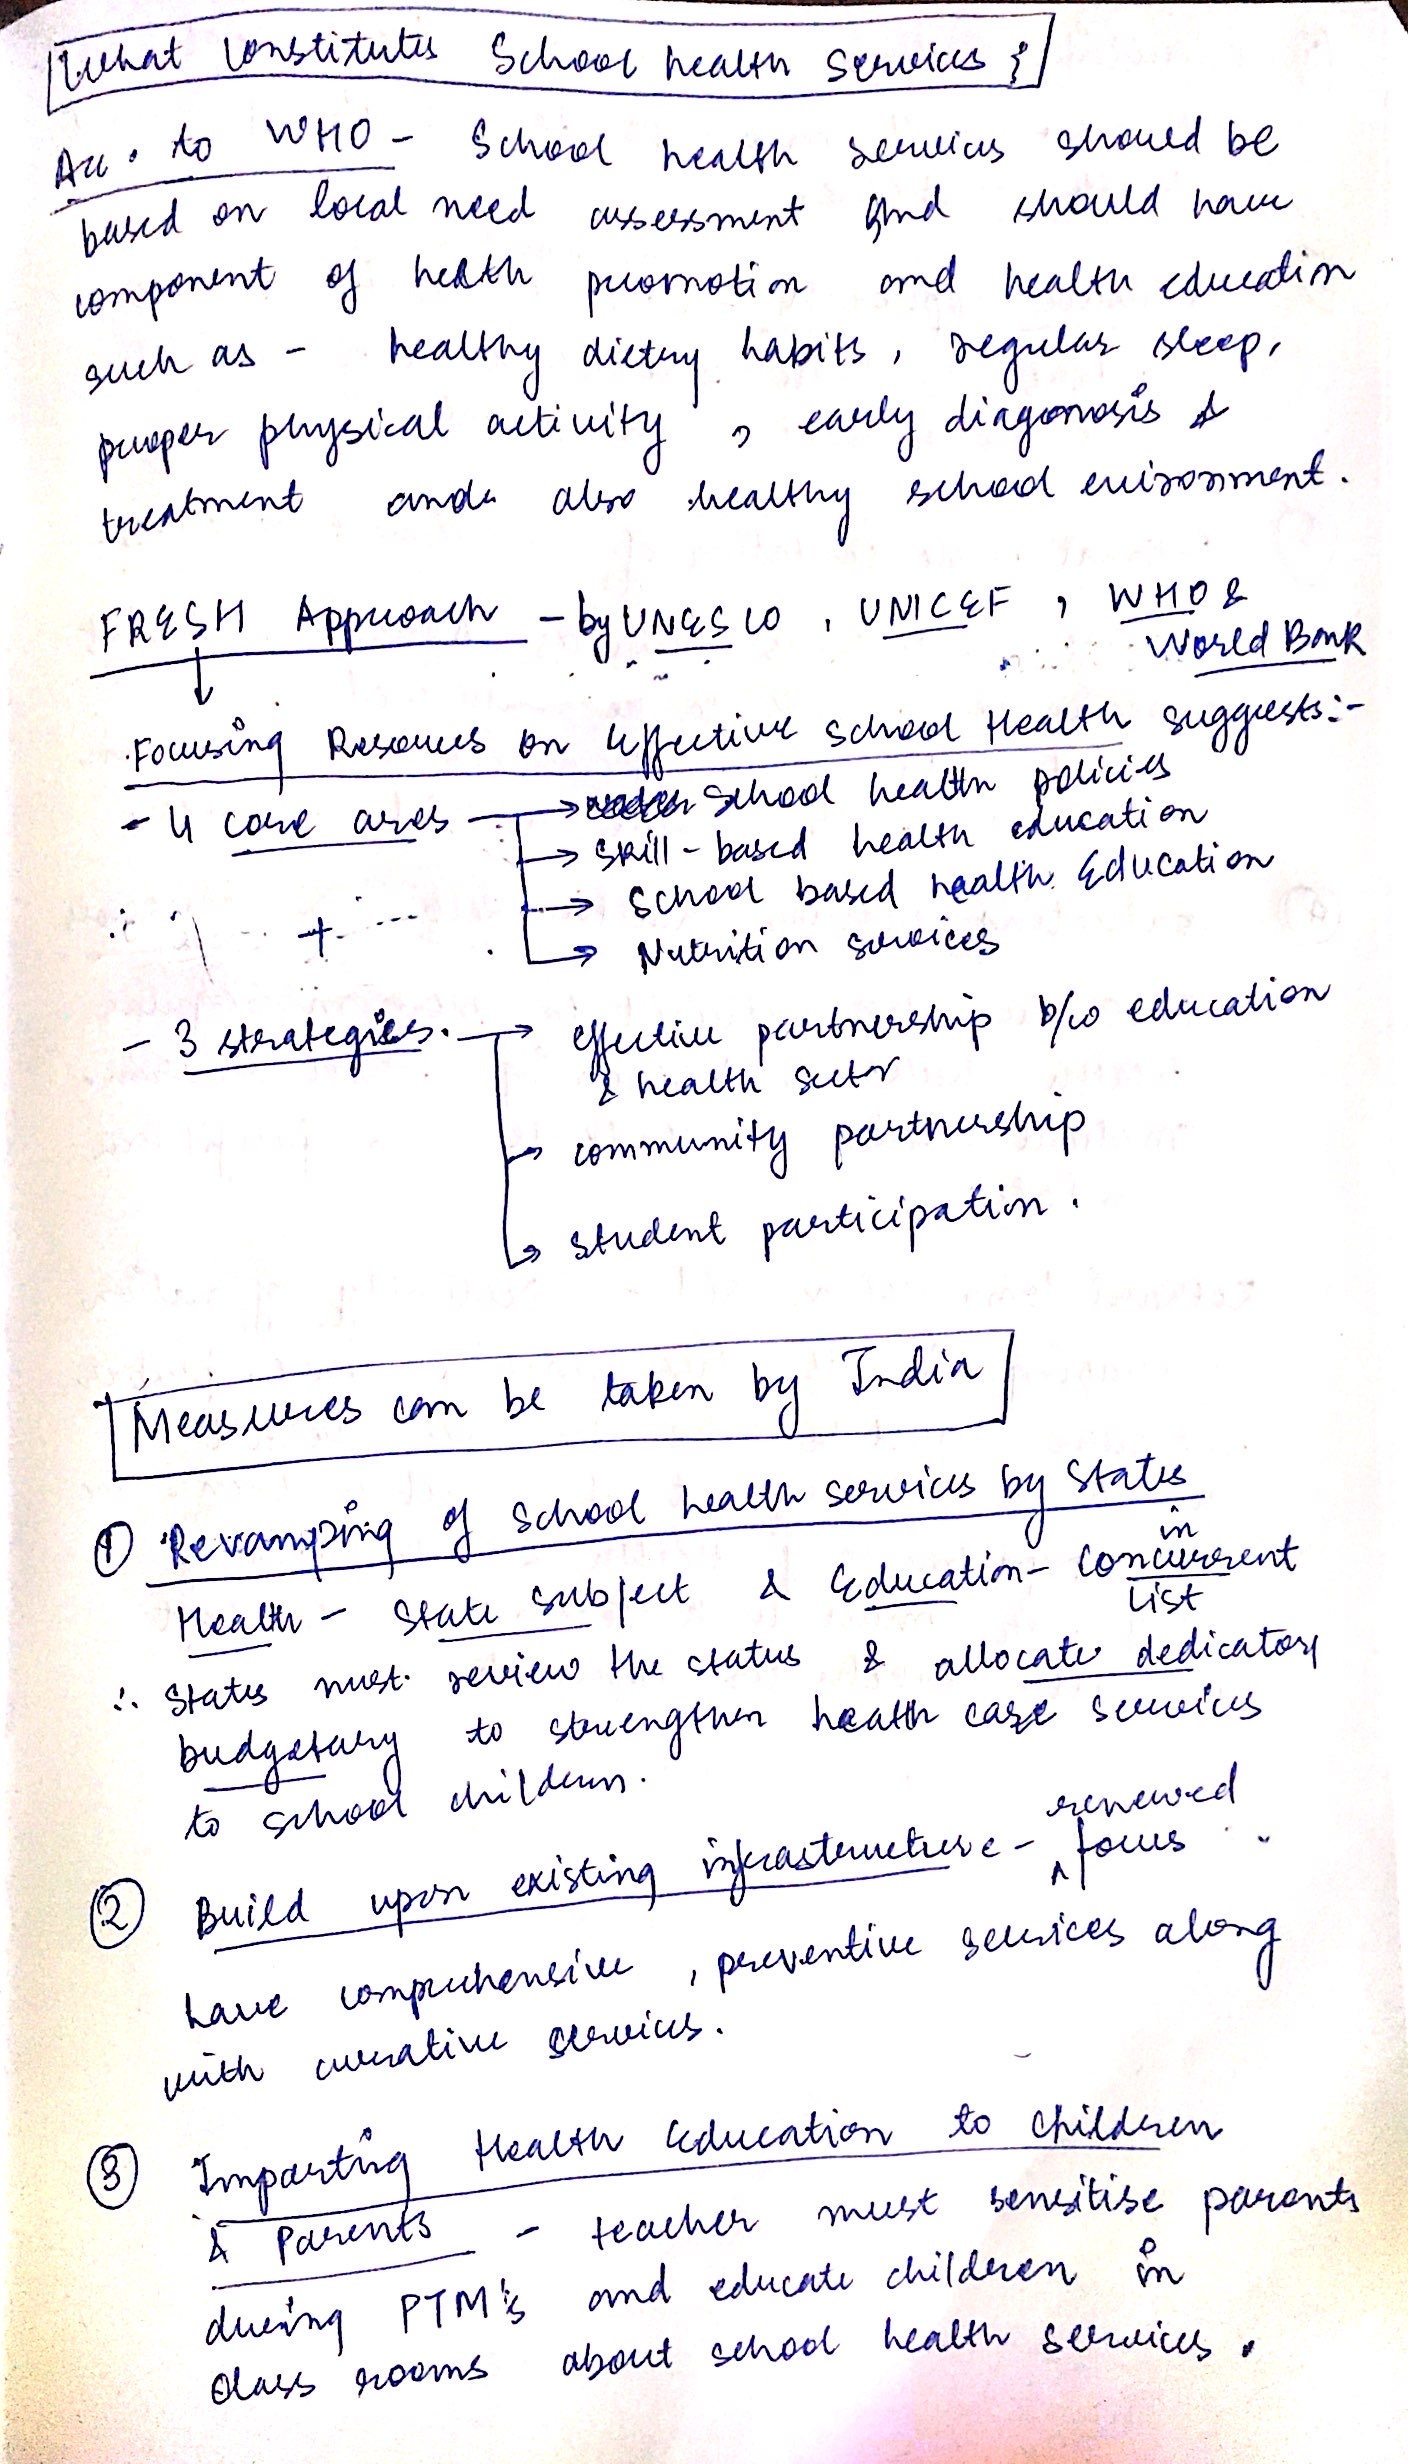 What constitutes School health Services ?
Acc. to WHO - School health services should be
based on local need assessment and should have
component of helth promotion and health education
such as - healthy dietry habits, regular sleep,
proper physical activity, early diagonosis &
treatment and also healthy school enironment.
FRESH Approach - by UNESCO, UNICEF, WHO &
World Bank
Focusing Resources on Effective School Health suggests:-
- 4 core ares → School health policies
→ Skill-based health education
→ School based health Education
+
→ Nutrition services
- 3 strategies. → effective partnership b/w education
& health sector
→ community partnership
→ student participation.
Measures can be taken by India
① Revamping of School health services by States
Health - State subject & Education - in Concurrent
List
∴ States must review the status & allocate dedicatory
budgetary to strengthen health care services
to school children.
② Build upon existing infrastructure - renewed focus
have comprehensive, preventive services along
with curative services.
③ Imparting Health Education to children
& Parents - teacher must sensitise parents
during PTM's and educate children in
class rooms about school health services.